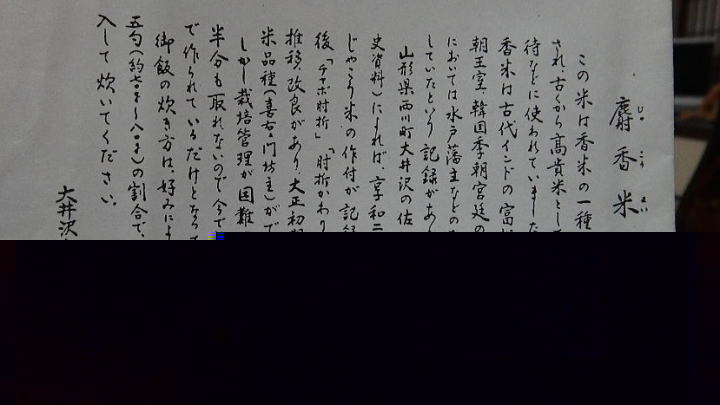 麝香米
じゃ こう まい
この米は香米の一種
され、古くから高貴米として
待などに使われていました
香米は古代インドの富
朝王室、韓国李朝宮廷の
においては水戸藩主などの
していたという記録があ
山形県西川町大井沢の佐
史資料）によれば、享和二
じゃこう米の作付が記録
後「チャボ肘折」「肘折かわり
推移、改良があり、大正初
米品種（喜右ェ門坊主）がで
しかし栽培管理が困難
半分も取れないので、今で
で作られているだけとなって
御飯の炊き方は、好みによ
五勺（約七〇～八〇）の割合で、
入して炊いてください。
大井沢